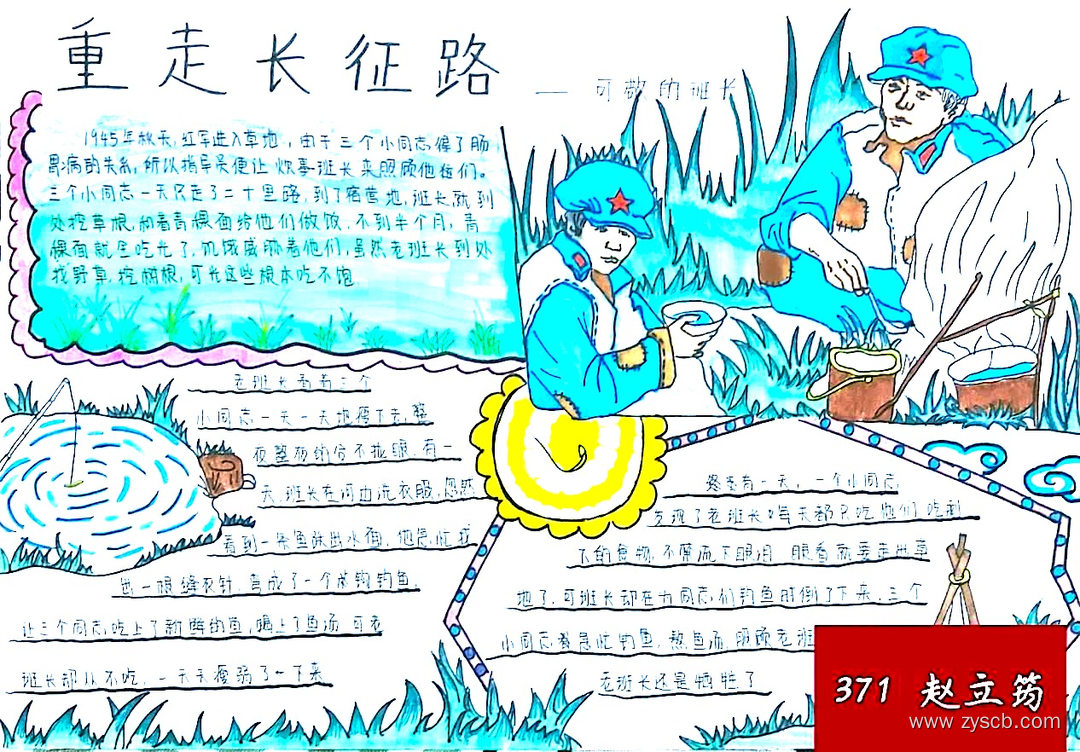 重走长征路
——可敬的班长
1945年秋天,红军进入草地,由于三个小同志得了肠
胃病的关系,所以指导员便让炊事班长来照顾他们。
三个小同志一天只走了二十里路,到了宿营地,班长就到
处挖草根,和着青稞面给他们做饭,不到半个月,青
稞面就全吃光了,饥饿威胁着他们,虽然老班长到处
找野草,挖树根,可光这些根本吃不饱
老班长看着三个
小同志一天一天地瘦下去,整
夜整夜的合不拢眼,有一
天,班长在河边洗衣服,忽然
看到一条鱼跃出水面,他急忙找
出一根缝衣针,弯成了一个鱼钩钓鱼,
让三个同志吃上了新鲜的鱼,喝上了鱼汤,可老
班长却从不吃,一天天瘦弱了下来
终于有一天,一个小同志
发现了老班长每天都只吃他们吃剩
下的食物,不禁流下眼泪,眼看就要走出草
地了,可班长却在为同志们钓鱼时倒了下来,三个
小同志着急忙钓鱼,熬鱼汤,照顾老班
老班长还是牺牲了
371 赵立筠
www.zyscb.com